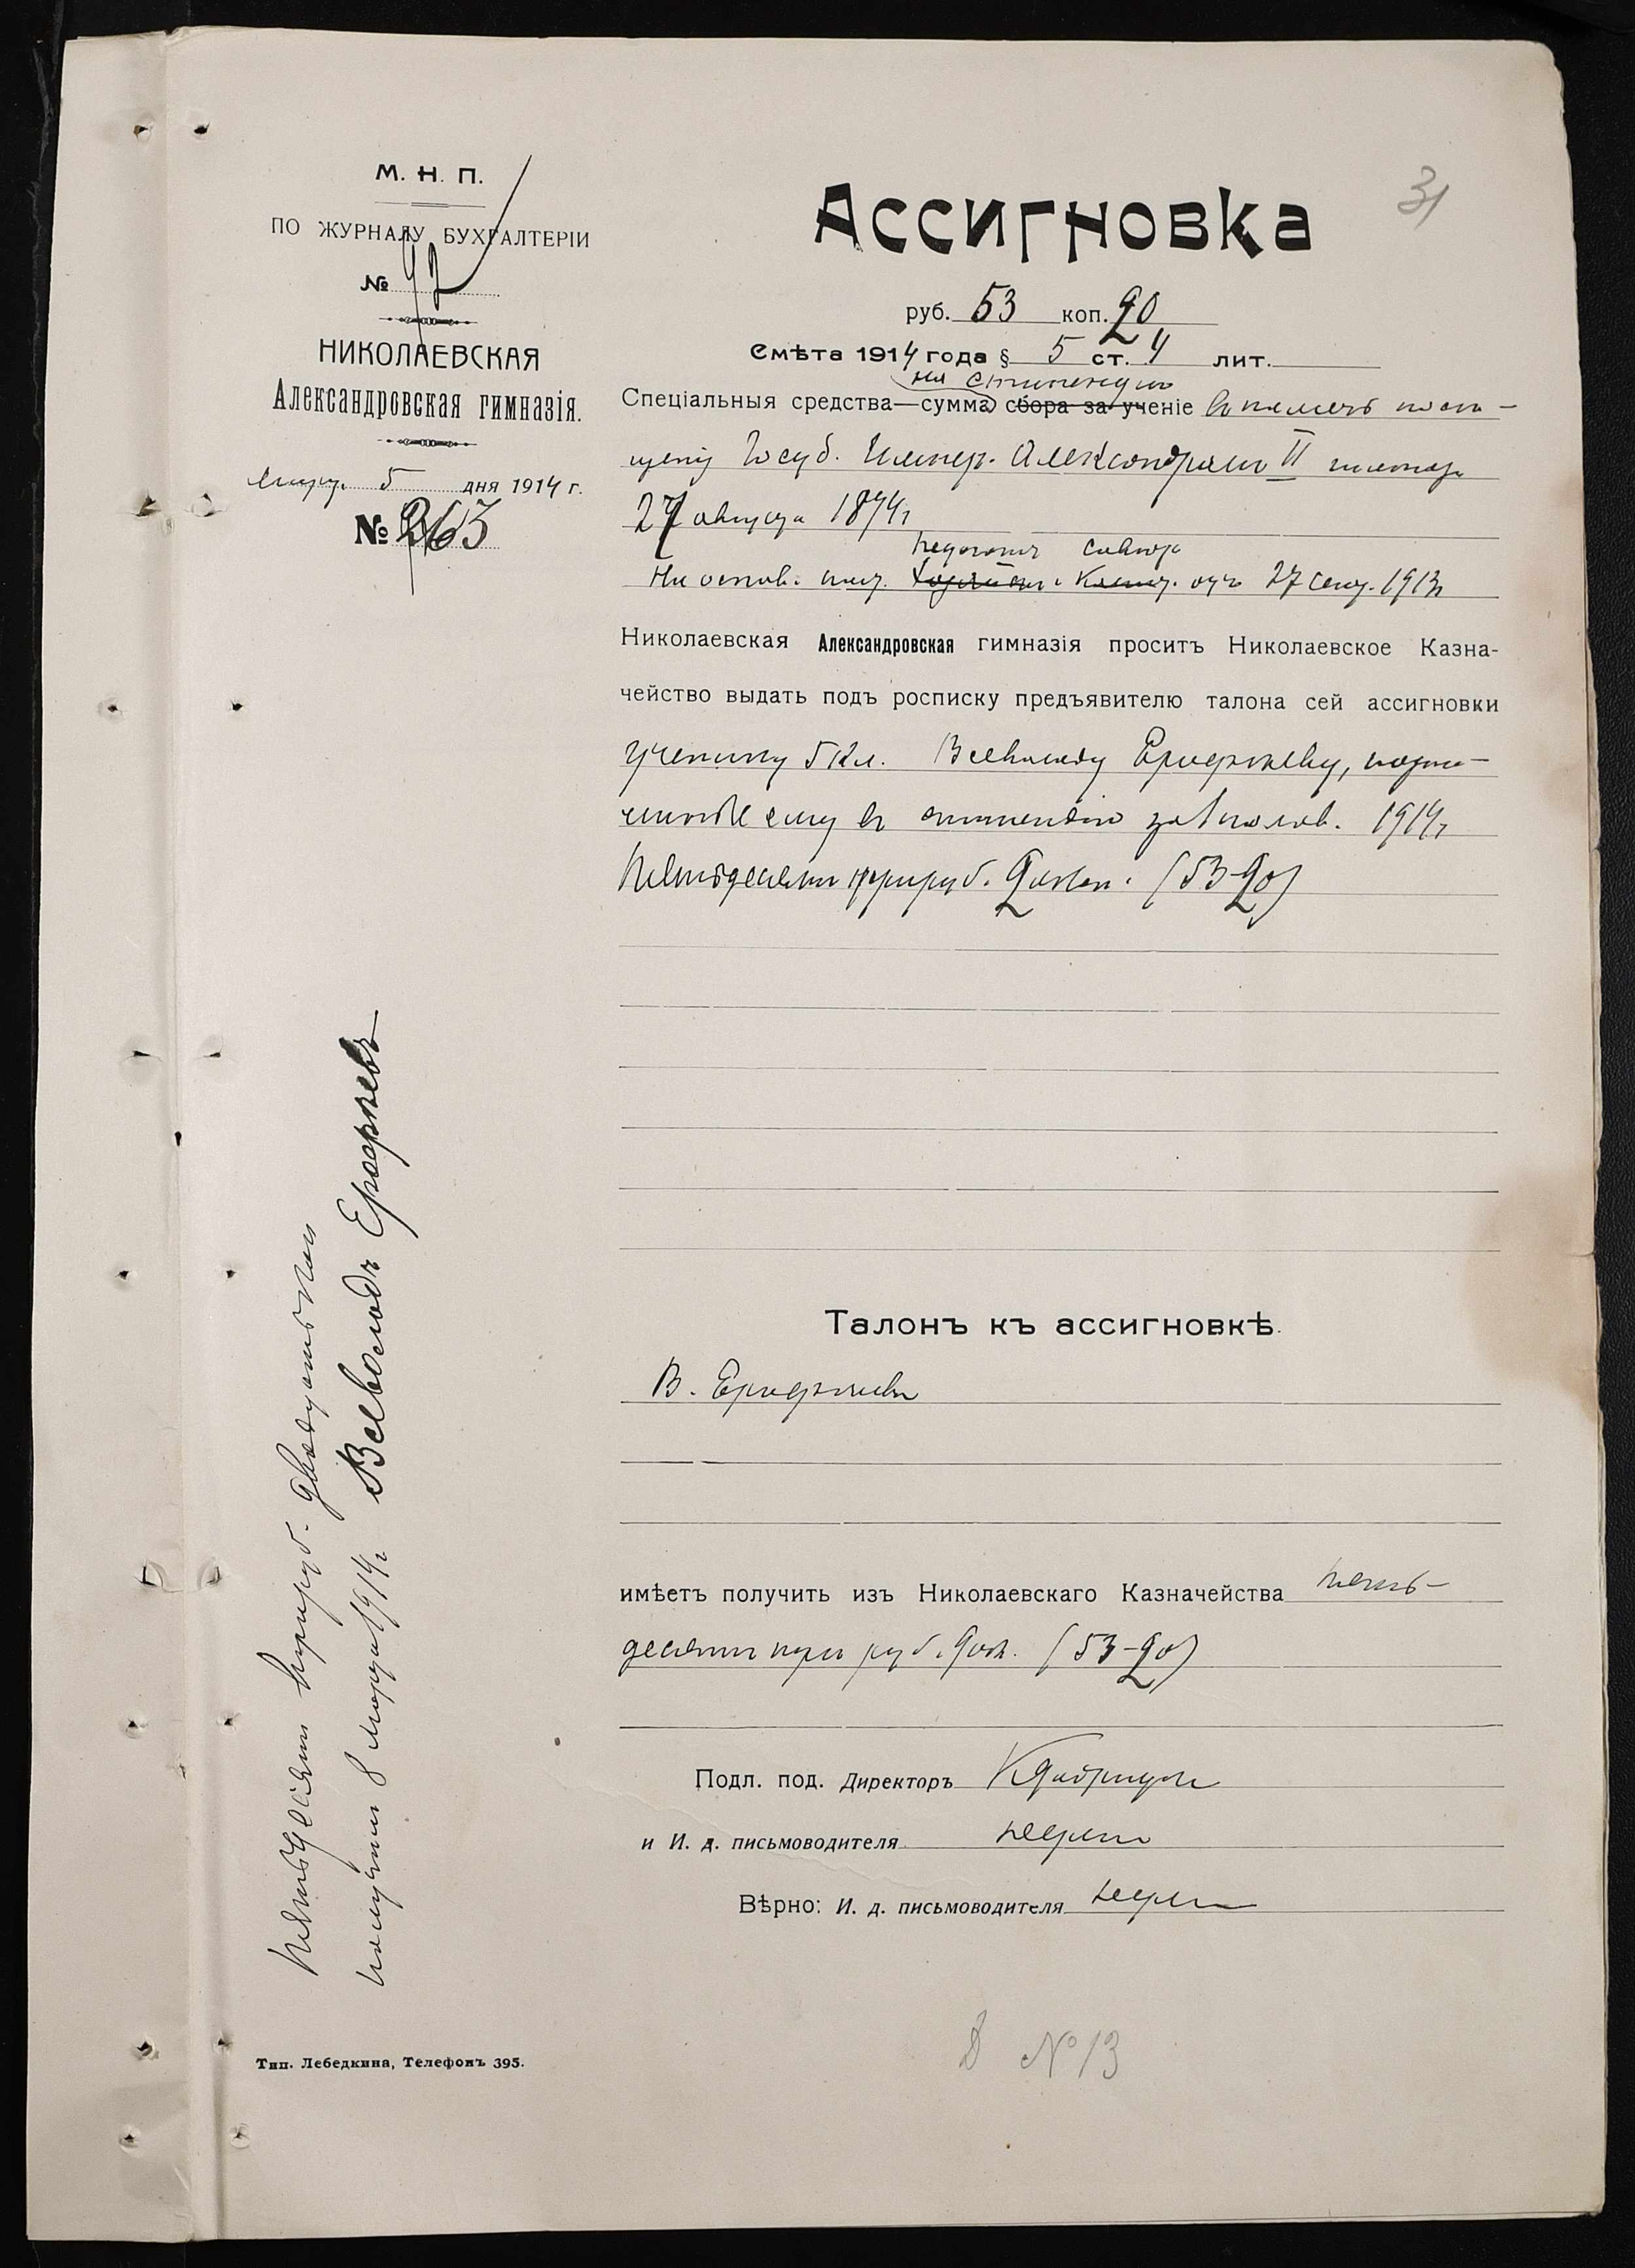 31
М. Н. П.
ПО ЖУРНАЛУ БУХГАЛТЕРІИ
№ 92
НИКОЛАЕВСКАЯ
Александровская гимназія.
5 дня 1914 г.
№ 263
Ассигновка
руб. 53 коп. 20
Смѣта 1914 года § 5 ст. 4 лит.
на стипендію
Спеціальныя средства—сумма сбора за ученіе въ память посѣ-
щенія Госуд. Импер. Александромъ II гимназіи
27 августа 1874 г
педагогич совѣта
На основ. пост. отъ 27 сент. 1913 г
Николаевская Александровская гимназія проситъ Николаевское Казна-
чейство выдать подъ росписку предъявителю талона сей ассигновки
ученику 5 кл. Всеволоду Ерофееву, назна-
ченныя ему въ стипендію за 1 полов. 1914 г
Пятьдесятъ три руб. 20 коп. (53-20)
Талонъ къ ассигновкѣ.
В. Ерофеевъ
имѣетъ получить изъ Николаевскаго Казначейства пять-
десятъ три руб. 20 к. (53-20)
Подл. под. Директоръ
и И. д. письмоводителя
Вѣрно: И. д. письмоводителя
Пятьдесятъ три руб. двадцать коп
получилъ 8 марта 1914 г Всеволодъ Ерофеевъ
Тип. Лебедкина, Телефонъ 395.
№ 13